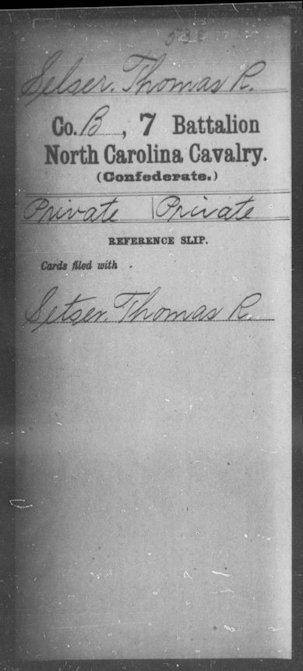 Selser, Thomas R.
Co. B, 7 Battalion
North Carolina Cavalry.
(Confederate.)
Private | Private
REFERENCE SLIP.
Cards filed with .
Setser, Thomas R.